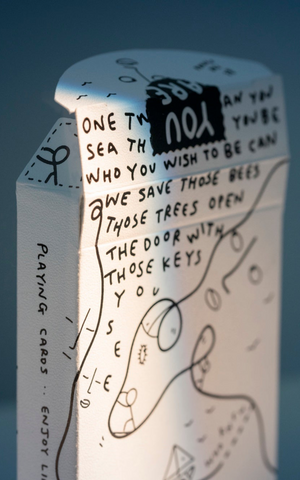 ARE
YOU
ONE TW AN YOU
SEA TH YOU BE
WHO YOU WISH TO BE CAN
WE SAVE THOSE BEES
THOSE TREES OPEN
THE DOOR WITH
THOSE KEYS
YOU
S
E
E
PLAYING CARDS :: ENJOY LI